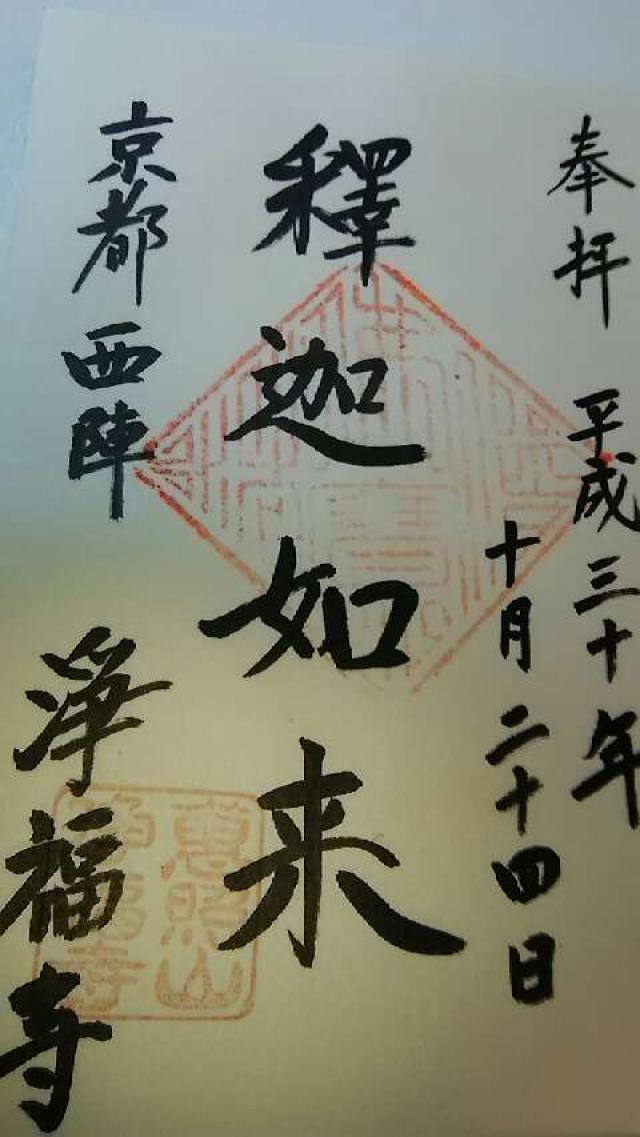 奉拝 平成三十年
十月二十四日
釋迦如来
京都西陣
淨福寺
恵照山
淨福寺